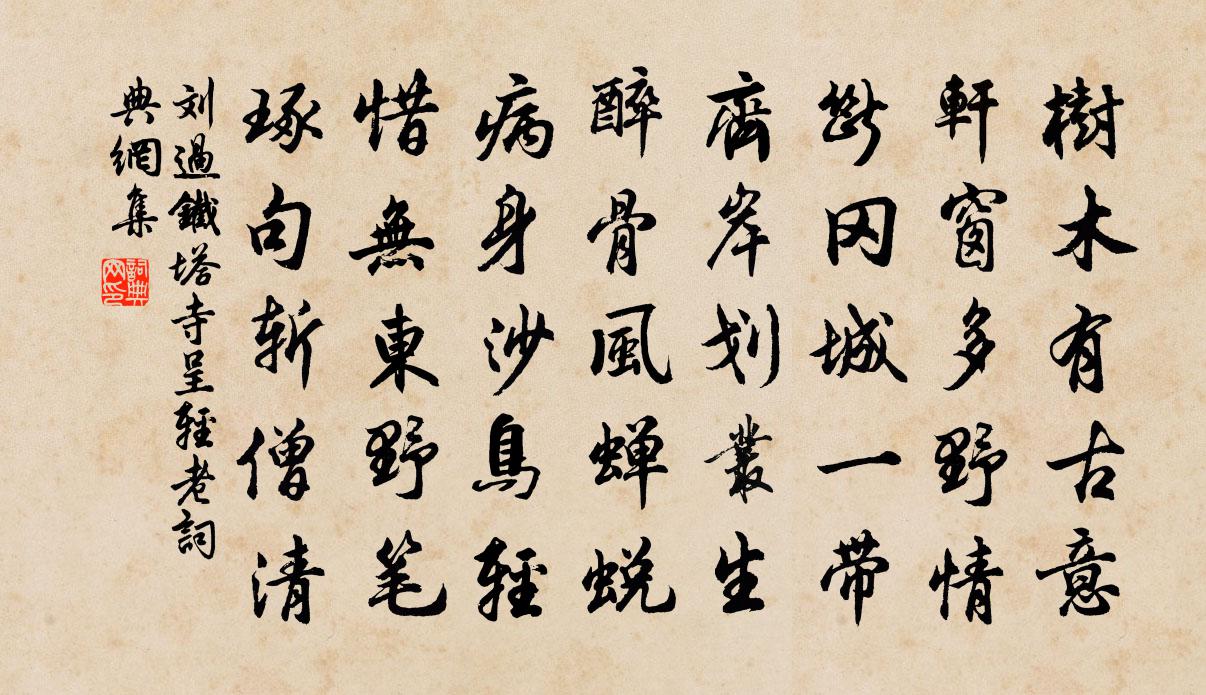 樹木有古意
軒窗多野情
斷冈城一帶
齊岸划叢生
醉骨風蝉蜕
病身沙鳥輕
惜無東野笔
琢句斩僧清
刘過鐵塔寺呈輕老詞
典網集
詞典网印